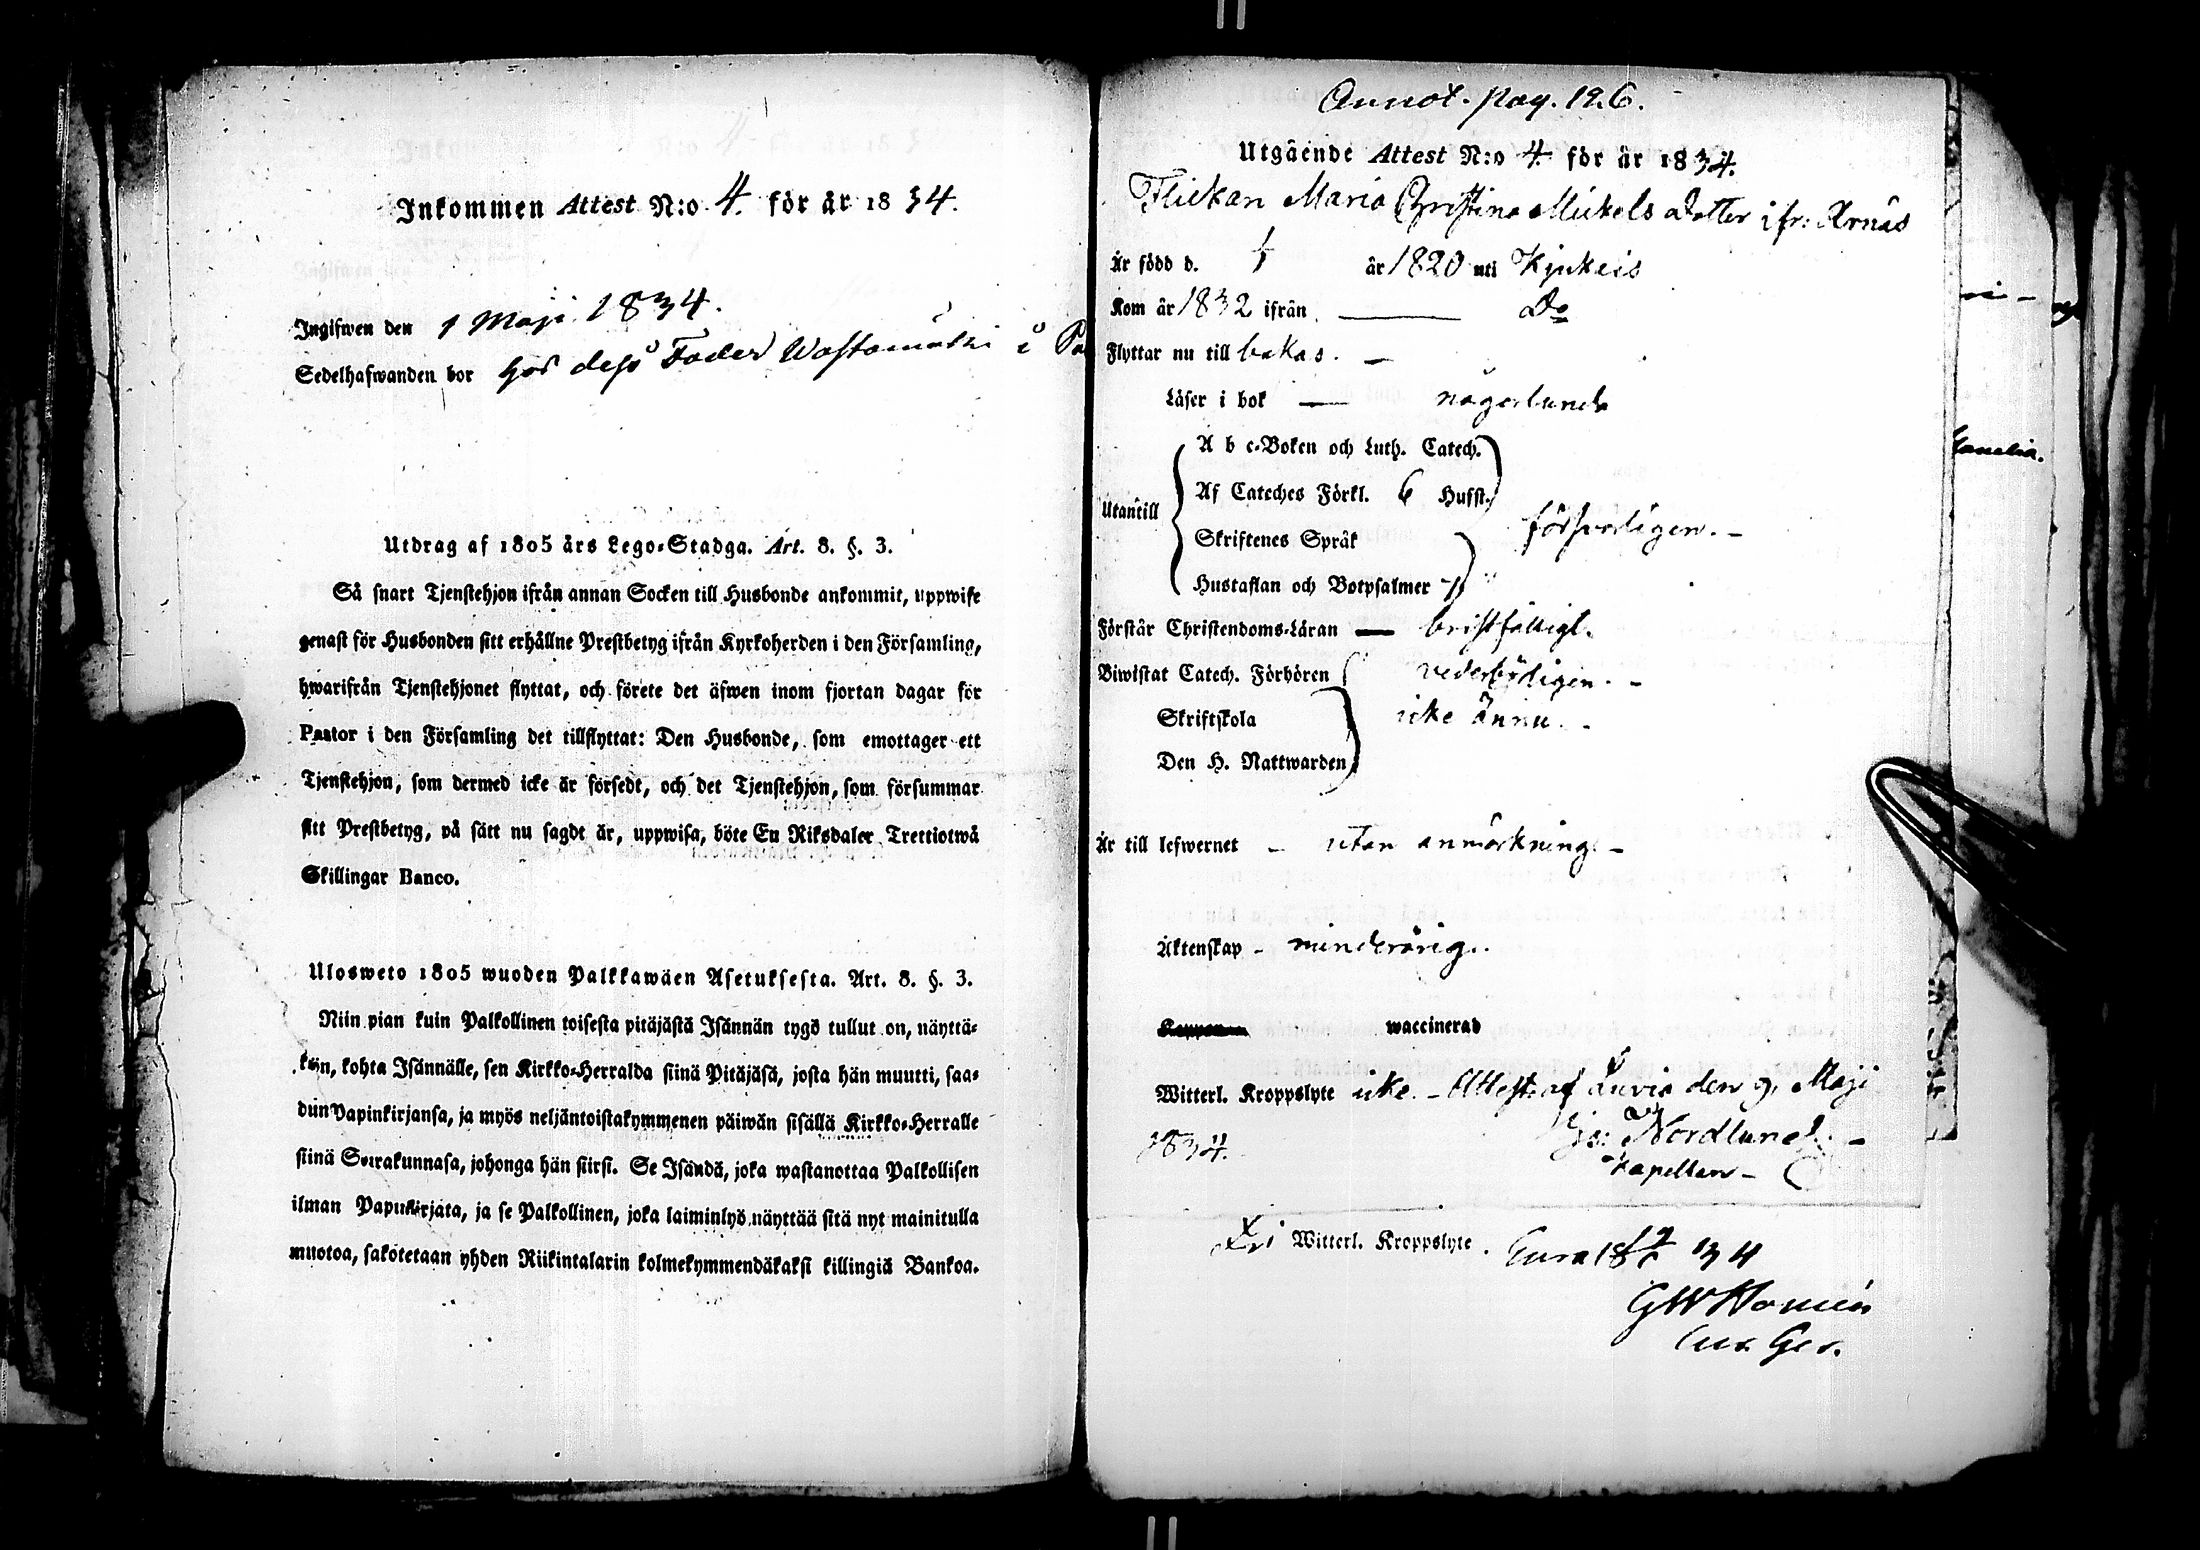 Inkommen Attest N:o 4. för år 1834.
Ingifwen den 1 Maji 1834.
Sedelhafwanden bor hos dess Fader i
Utdrag af 1805 års Lego-Stadga. Art. 8. §. 3.
Så snart Tjenstehjon ifrån annan Socken till Husbonde ankommit, uppwise
genast för Husbonden sitt erhållne Prestbetyg ifrån Kyrkoherden i den Församling,
hwarifrån Tjenstehjonet flyttat, och förete det äfwen inom fjortan dagar för
Pastor i den Församling det tillflyttat: Den Husbonde, som emottager ett
Tjenstehjon, som dermed icke är försedt, och det Tjenstehjon, som försummar
sitt Prestbetyg, på sätt nu sagdt är, uppwisa, böte En Riksdaler Trettiotwå
Skillingar Banco.
Ulosweto 1805 wuoden Palkkawäen Asetuksesta. Art. 8. §. 3.
Niin pian kuin Palkollinen toisesta pitäjästä Isännän tygö tullut on, näyttä-
kön, kohta Isännälle, sen Kirkko-Herralda siinä Pitäjäsä, josta hän muutti, saa-
dun Papinkirjansa, ja myös neljäntoistakymmenen päiwän sisällä Kirkko-Herralle
siinä Seurakunnasa, johonga hän siirsi. Se Isändä, joka wastanottaa Palkollisen
ilman Papinkirjata, ja se Palkollinen, joka laiminlyö näyttää sitä nyt mainitulla
muotoa, sakotetaan yhden Riikintalarin kolmekymmendäkaksi killingiä Bankoa.
Annot. pag. 196.
Utgående Attest N:o 4 för år 1834.
Flickan Maria Christina Mickels Dotter ifr: Arnäs
Är född d. 1/1 år 1820 uti Kjukais
Kom år 1832 ifrån — Do
Flyttar nu till bakas. —
Läser i bok — någorlunda
A b c-Boken och Luth. Catech.
Utantill Af Cateches Förkl. 6 Hufst.
försvarligen. —
Skriftenes Språk
Hustaflan och Botpsalmer
Förstår Christendoms-Läran — bristfälligt.
Biwistat Catech. Förhören vederbörligen. —
Skriftskola icke ännu. -
Den H. Nattwarden
Är till lefwernet — utan anmärkning. —
Äktenskap - minderårig.
waccinerad
Witterl. Kroppslyte icke. - Attest. af Luvia den 9, Maji
1834. Nordlund. —
Kapellan —
Fri Witterl. Kroppslyte. Eura 34